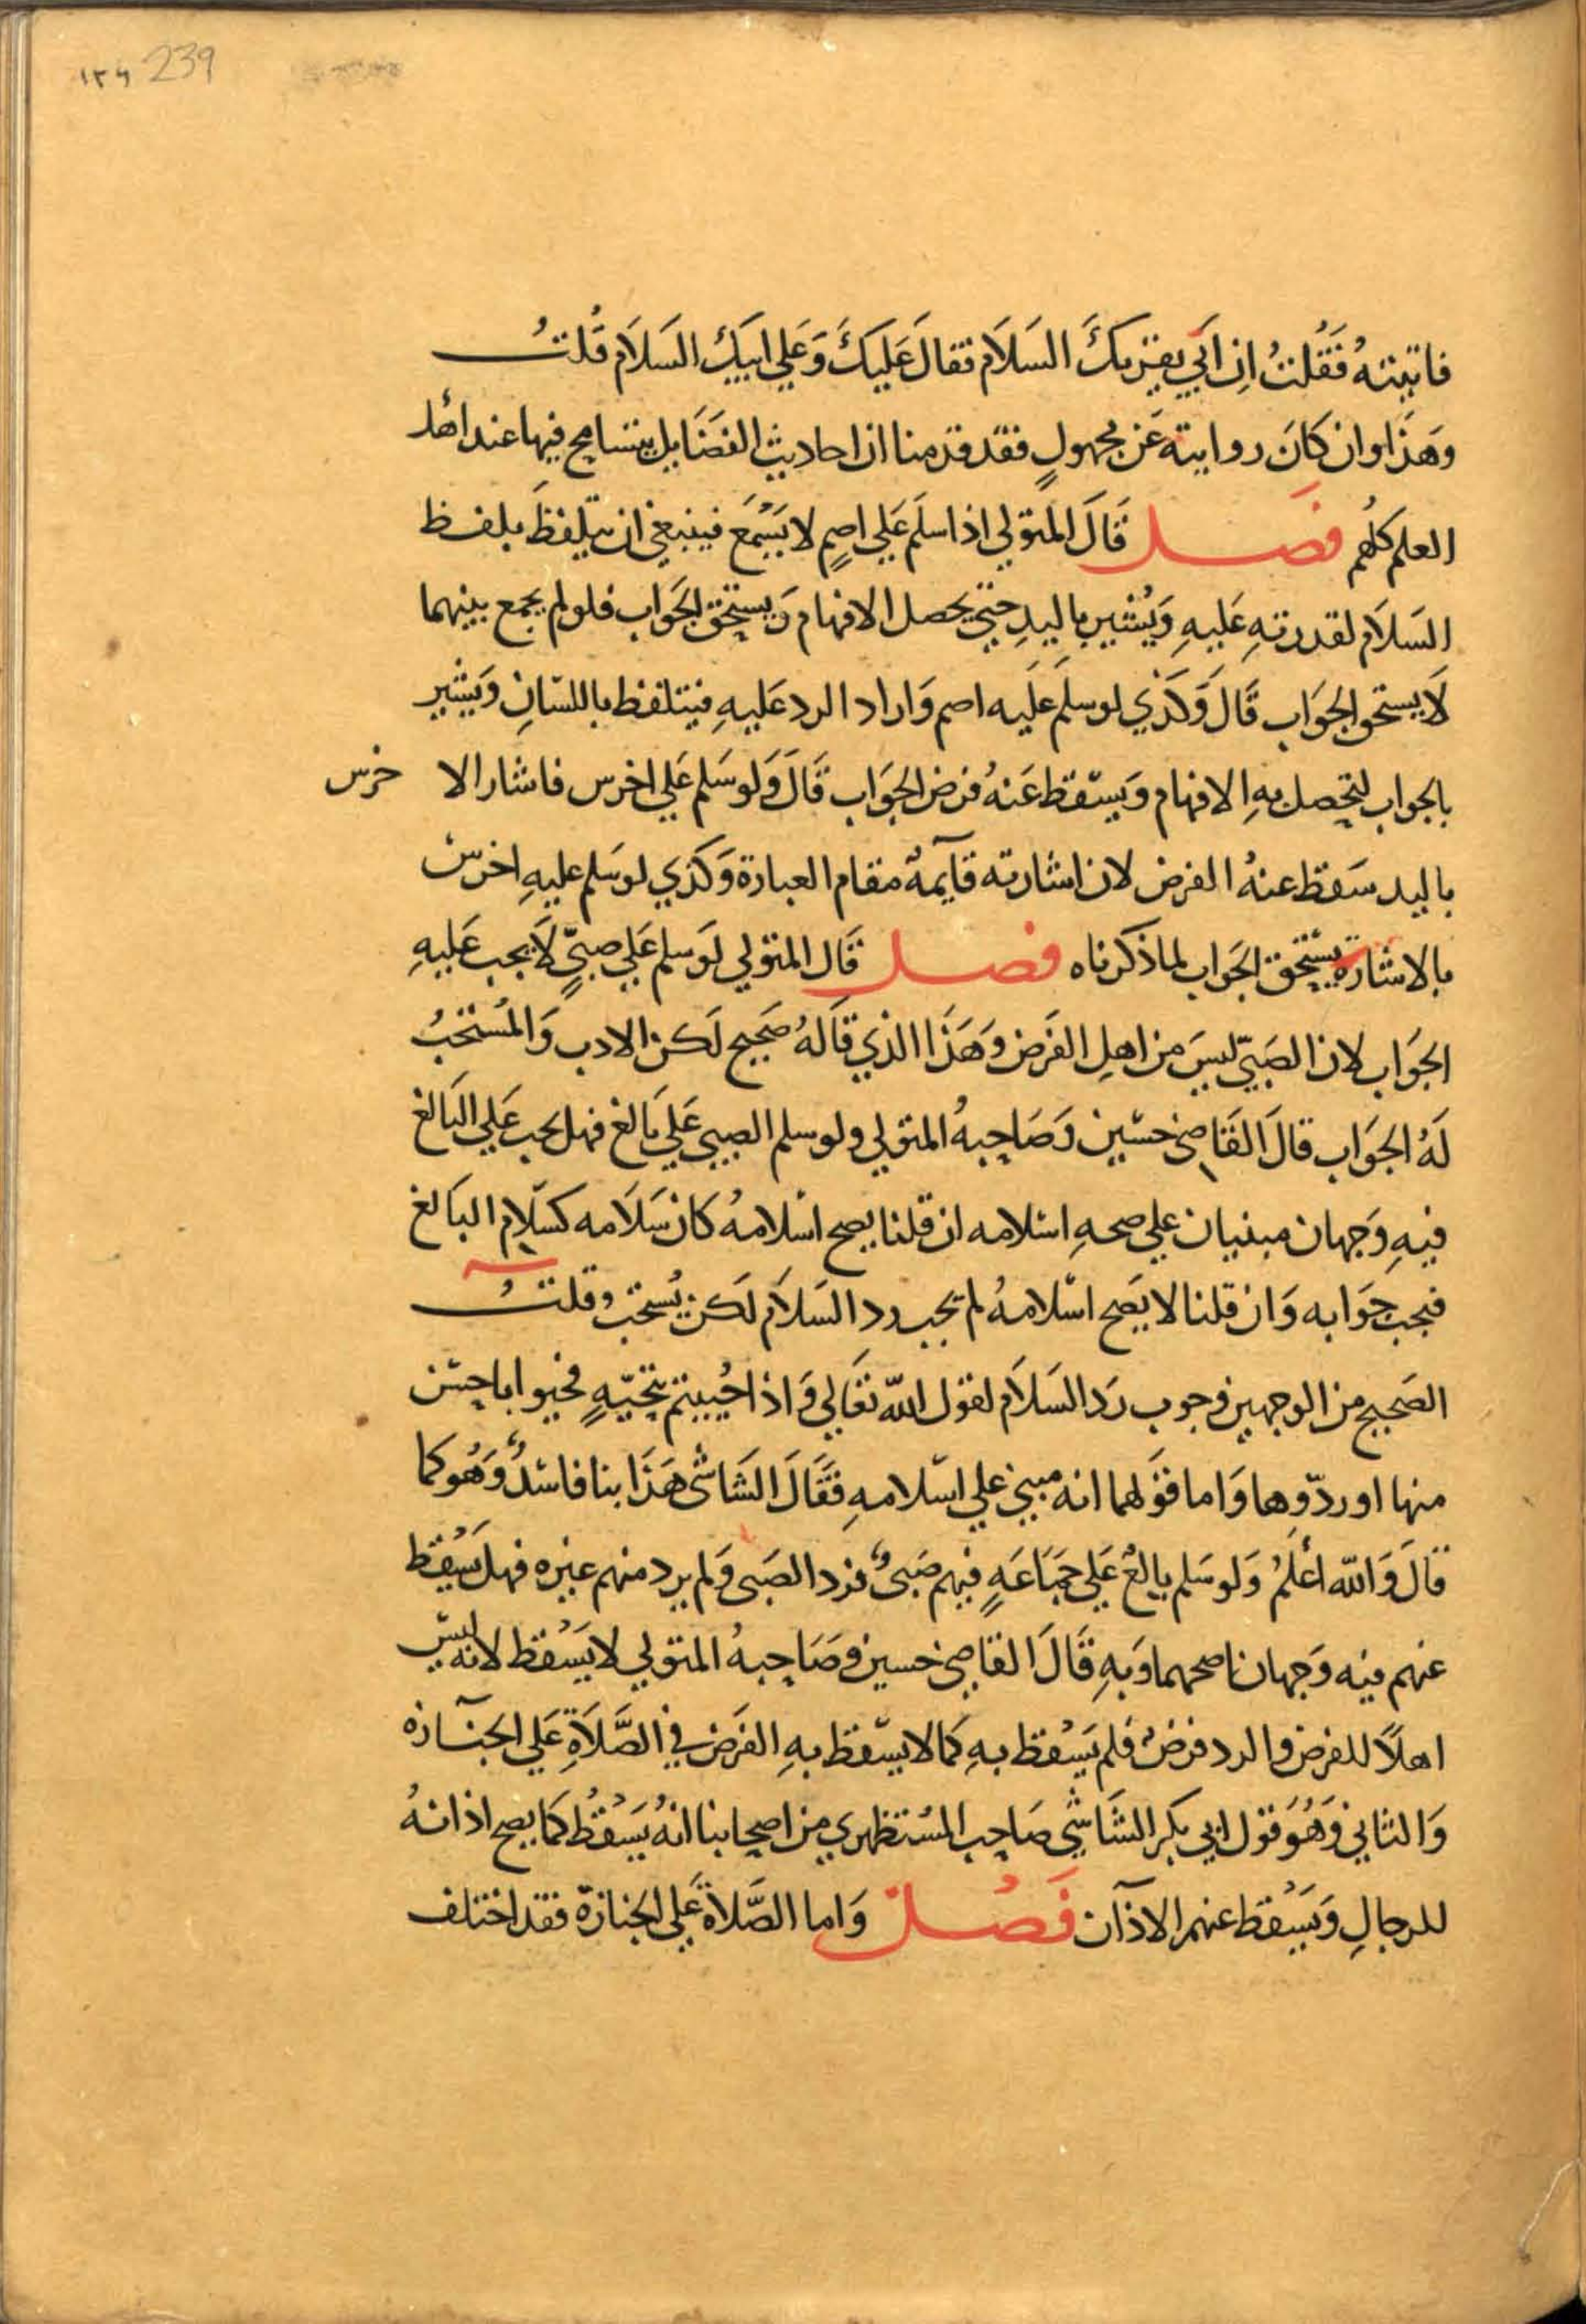 239 ١٣٩
فاتيته فَقُلتُ اِن ابَي يقريكَ السَلاَم فقالَ عَلَيكَ وَعَلي ابيكَ السَلاَم قُلتُ
وهَذَا وان كانَ روايته عَن مجهولٍ فقد قدمنا ان احاديث الفضَايل يتسامح فيها عند اهل
العلم كلهم فصل قَالَ المتولي اذا سلَم عَلي اصمٍ لا يَسْمَع فينبغي ان يتلفظَ بلفظ
السَلاَم لقدرتهِ عَليهِ وَيُشير باليدِ حتي يحصل الافهام وَيستحق الجَواب فلو لم يجمع بينهما
لاَ يستحق الجَواب قَالَ وَكَذي لو سلَم عَلَيه اصم وَاراد الرد عَليهِ فيتلفظ باللسَانِ وَيشير
بالجواب ليحصل بهِ الافهام وَيسْقط عَنهُ فرض الجَواب قَالَ وَلو سَلم عَلي اخرس فاشار الا خرس
باليد سَقط عنهُ الفرض لان اشارته قآيمةٌ مقام العبارة وَكذي لو سَلم عليهِ اخرس
بالاشارة يسْتحق الجَواب لما ذكرناه فصل قَال المتولي لَو سلم عَلي صبيٍّ لاَ يجب عَليهِ
الجَواب لان الصَبيّ ليسَ من اهلِ الفَرض وَهَذَا الذي قالهُ صَحيح لَكن الادب وَالمُستحَبُ
لَهُ الجَواب قالَ القَاضي حسَين وَصَاحِبهُ المتولي ولو سلم الصبي عَلي بَالغ فهل يجب عَلي البَالغ
فيهِ وَجهان مبنيان علي صحهِ اسْلامه ان قلنا يصح اسْلامهُ كان سَلاَمه كسَلام البَالغ
فيجب جَوابه وَان قلنا لا يَصح اسْلامهُ لم يجب رد السَلاَم لَكن يُستحَب وقلتُ
الصَحيح من الوجهين وجوب رَد السَلاَم لقول الله تعَالي وَاذا حُييتم بتحيّهٍ فحيوا باحسْن
منها او ردّوها وَاما قوَلهما انه مبني علي اسْلامهِ فقَالَ الشَاشي هَذَا بنا فاسْدٌ وَهُو كما
قالَ وَالله اعْلَمُ وَلو سَلم بالغٌ عَلي جمَاعَهٍ فيهم صَبيٌ فرد الصَبي وَلم يرد منهم غيره فهل يَسْقط
عنهم فيه وَجهان اصحهما وَبهِ قَالَ القاضي حسين وصَاحِبهُ المتولي لا يَسْقط لانه ليسَ
اهلاً للفرض والرد فرضٌ فلم يَسْقط بهِ كمَا لا يسْقط بهِ الفَرض في الصَّلاَةِ عَلي الجنَآزه
وَالثاني وَهُوَ قول ابي بكر الشَاشي صَاحِب المسْتظهري من اصحابنا انهُ يَسْقُط كمَا يصح اذانهُ
للرجالِ وَيَسْقط عنهم الاذآن فَصُل وَاما الصَّلاة عَلي الجنازة فقد اختلف